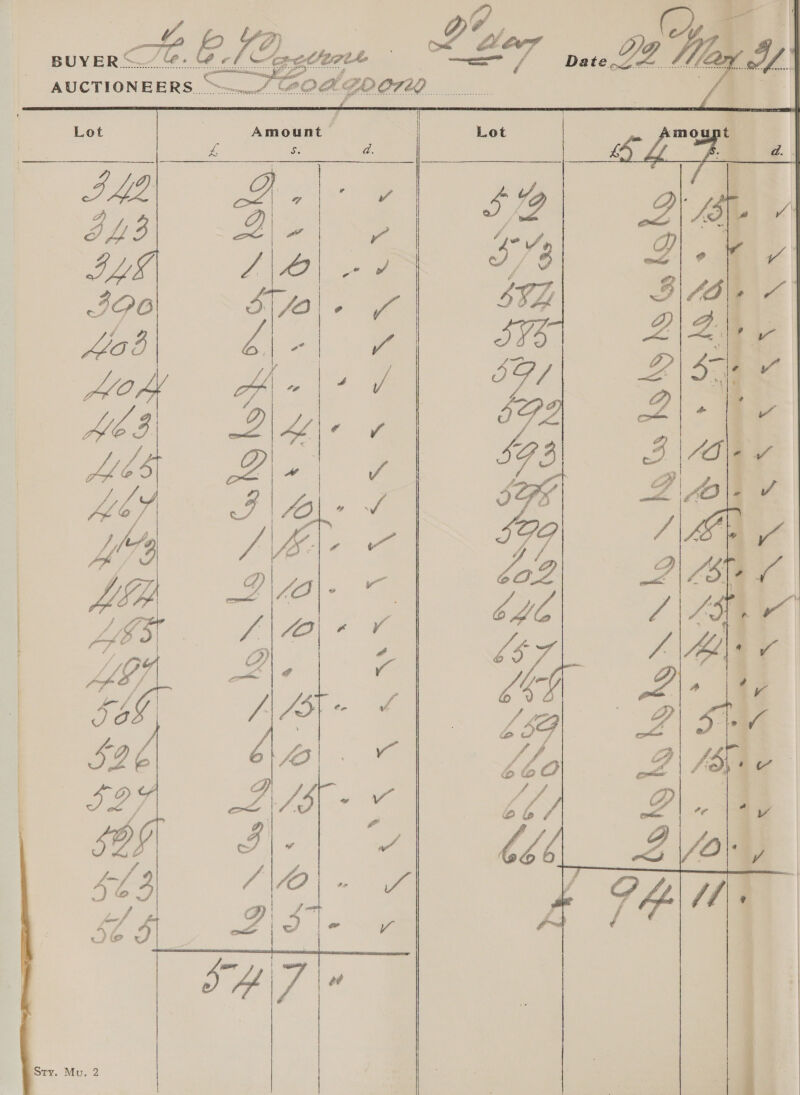 BUYER H. C. 2d day Date 22 May 31
AUCTIONEERS Hodgsons
Lot Amount Lot Amount
£ s. d. £54 7 s. d.
342 2 . - ✓ 572 2 15 - ✓
343 2 - ✓ 573 2 . - ✓
348 1 10 - ✓ 584 3 10 - ✓
390 5 10 - ✓ 585 2 2 - ✓
403 6 - ✓ 591 2 5 - ✓
404 4 - - ✓ 592 2 - - ✓
463 2 4 - ✓ 593 3 10 - ✓
465 2 - ✓ 598 2 10 - ✓
467 3 10 - ✓ 599 1 18 - ✓
473 1 18 - ✓ 602 2 15 - ✓
484 2 10 - ✓ 646 1 15 - ✓
485 1 10 - ✓ 657 1 14 - ✓
487 2 - - ✓ 658 2 - - ✓
508 1 15 - ✓ 659 2 5 - ✓
526 6 10 - ✓ 660 2 15 - ✓
527 2 15 - ✓ 661 2 - - ✓
528 3 - - ✓ 666 2 10 - ✓
563 1 10 - ✓ £ 94 11 -
565 2 5 - ✓
54 7 -
Sty. Mu. 2